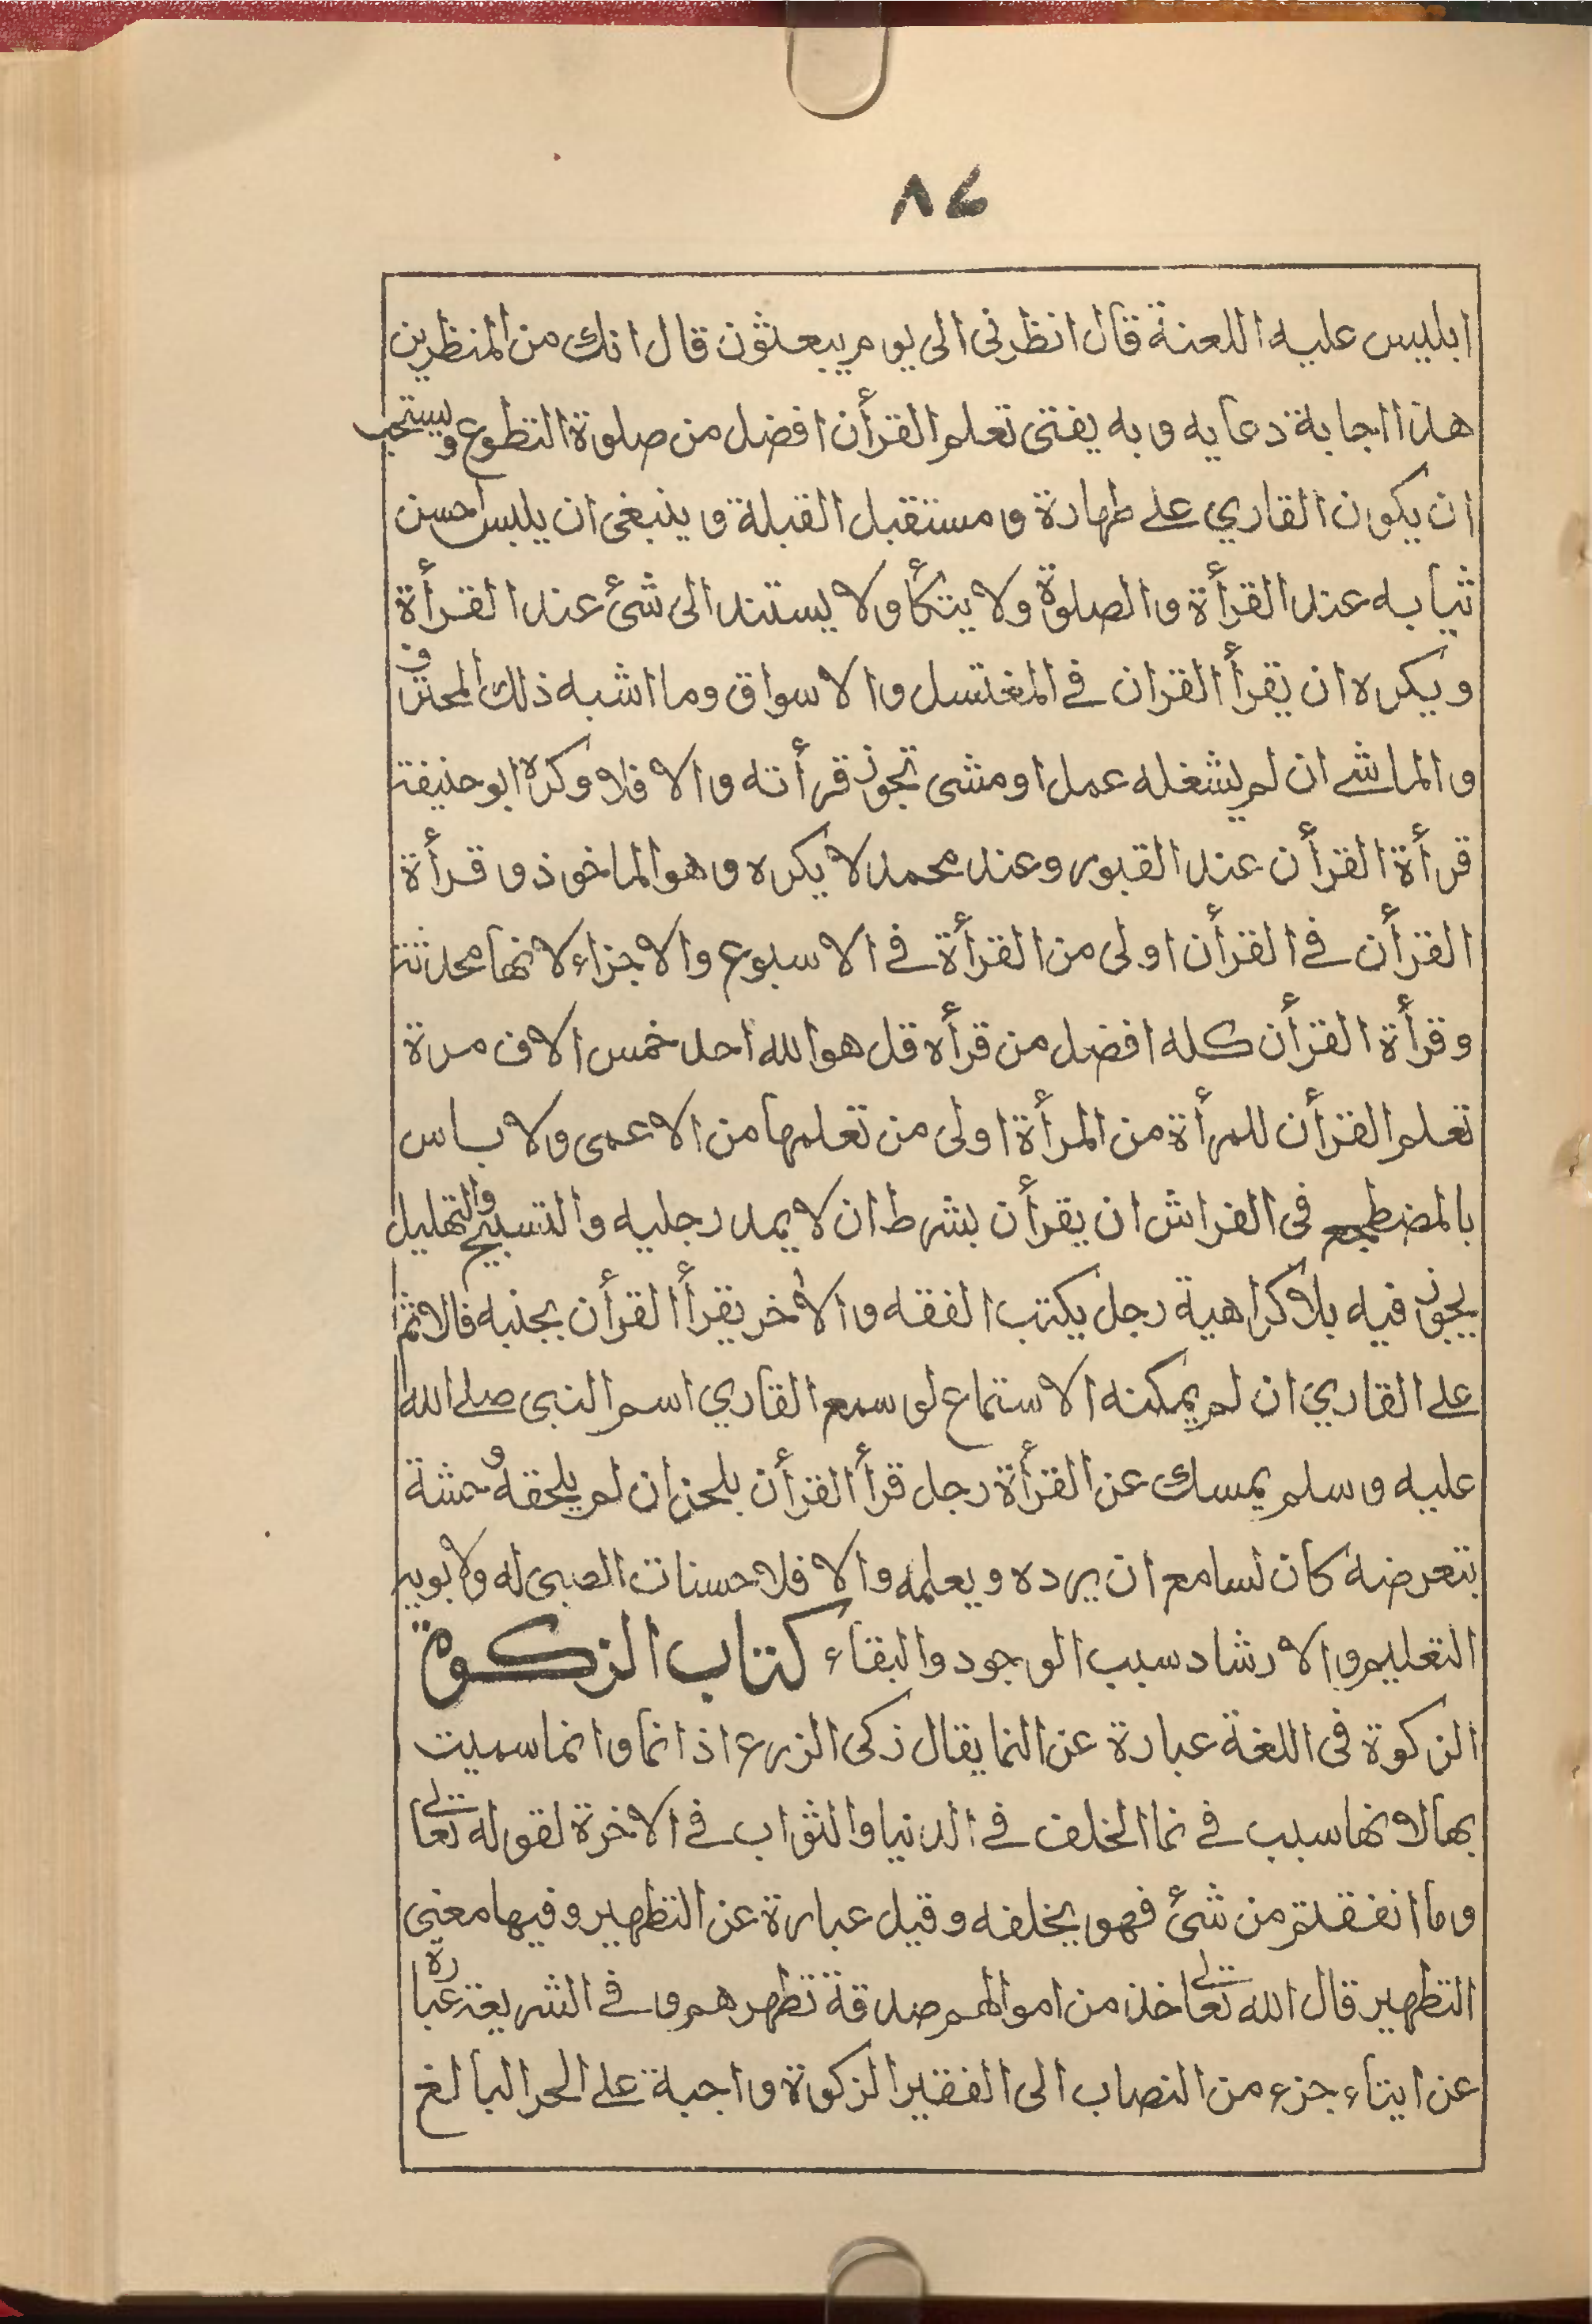 ٨٤
ابليس عليه اللعنة قال انظرني الى يوم يبعثون قال انك من المنظرين
هذا اجابة دعايه وبه يفتى تعلم القرأن افضل من صلوة التطوع ويستحب
ان يكون القاري على طهارة ومستقبل القبلة وينبغي ان يلبس احسن
ثيابه عند القرأة والصلوة ولا يتكأ ولا يستند الى شئ عند القرأة
ويكره ان يقرأ القران في المغتسل والاسواق وما اشبه ذلك المحترف
والماشي ان لم يشغله عمل او مشى تجوز قرأته والا فلا وكره ابو حنيفة
قرأة القرأن عند القبور وعند محمد لا يكره وهو الماخوذ وقرأة
القرأن في القرأن اولى من القرأة في الاسبوع والاجزاء لانها محدثة
وقرأة القرأن كله افضل من قرأة قل هو الله احد خمس الاف مرة
تعلم القرأن للمرأة من المرأة اولى من تعلمها من الاعمى ولا باس
بالمضطجع فى الفراش ان يقرأن بشرط ان لا يمد رجليه والتسبيح والتهليل
يجوز فيه بلا كراهية رجل يكتب الفقه والأخر يقرأ القرأن بجنبه فالاثم
على القاري ان لم يمكنه الاستماع لو سمع القاري اسم النبى صلى الله
عليه وسلم يمسك عن القرأة رجل قرأ القرأن بلحن ان لم يلحقه وحشة
بتعرضه كان لسامع ان يرده ويعلمه والا فلا حسنات الصبى له ولابويه
التعليم والارشاد سبب الوجود والبقاء كتاب الزكوة
الزكوة فى اللغة عبارة عن النما يقال زكى الزرع اذا نما وانما سميت
بها لانها سبب في نما الخلف في الدنيا والثواب في الاخرة لقوله تعالى
وما انفقتم من شئ فهو يخلفه وقيل عبارة عن التطهير وفيها معنى
التطهير قال الله تعالى خذ من اموالهم صدقة تطهرهم وفي الشريعة عبارة
عن ايتاء جزء من النصاب الى الفقير الزكوة واجبة على الحر البالغ